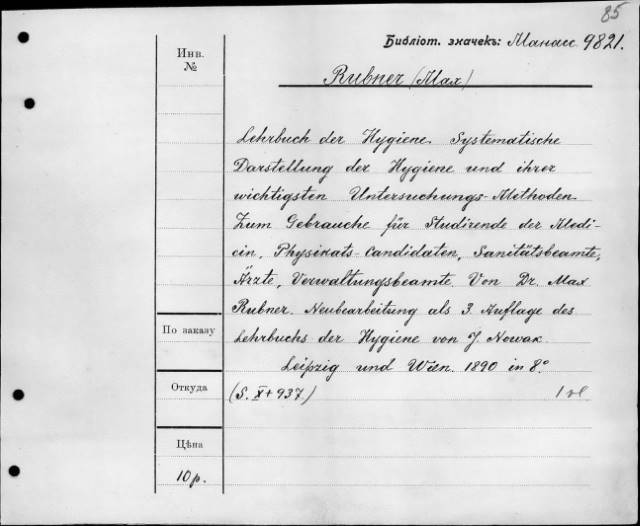 85
Библіот. значекъ: Манасс. 9821.
Инв.
№
Rubner (Max)
Lehrbuch der Hygiene. Systematische
Darstellung der Hygiene und ihrer
wichtigsten Untersuchungs-Methoden.
Zum Gebrauche für Studirende der Medi-
cin, Physikats-Candidaten, Sanitätsbeamte,
Ärzte, Verwaltungsbeamte. Von Dr. Max
Rubner. Neubearbeitung als 3. Auflage des
Lehrbuchs der Hygiene von J. Nowak.
Leipzig und Wien. 1890 in 8°.
(S. X + 937.)
1 vl
По заказу
Откуда
Цѣна
10 р.